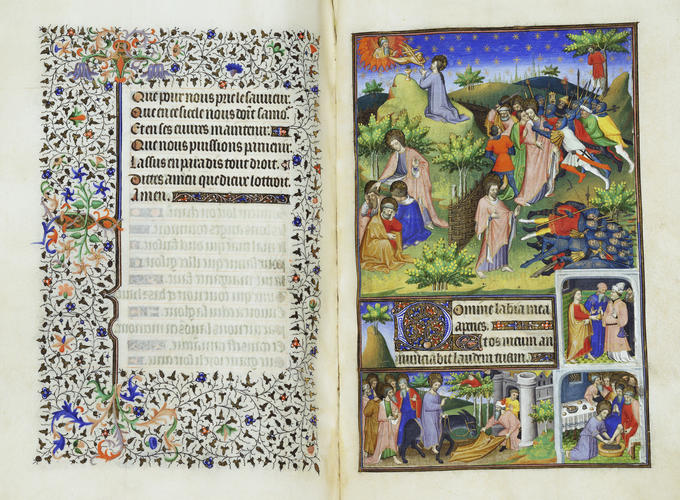 Que pour nous prie le sauueur.
Que en ce siecle nous doit sance
Et en ses euures maintenir.
Que nous puissions paruenir.
Lassus en paradis tout droit. Et
Dittes amen que dieux lottroit.
Amen.
Domine labia mea
aperies.
Et os meum an
nunciabit laudem tuam.